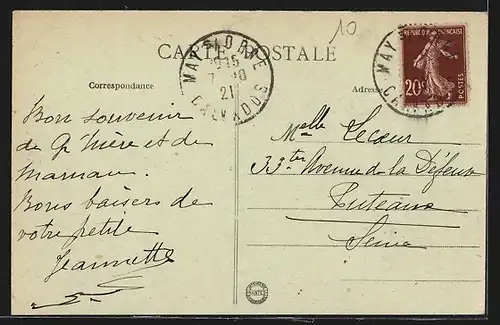 10
CARTE POSTALE
Correspondance
Adresse
MAY-S-ORNE
21
CALVADOS
REPUBLIQUE FRANÇAISE
20c
POSTES
MAY
Bon souvenir
de Gd Mère et de
Maman.
Bons baisers de
votre petite
Jeannette
Melle Lecœur
33ter Avenue de la Défense
Puteaux
Seine